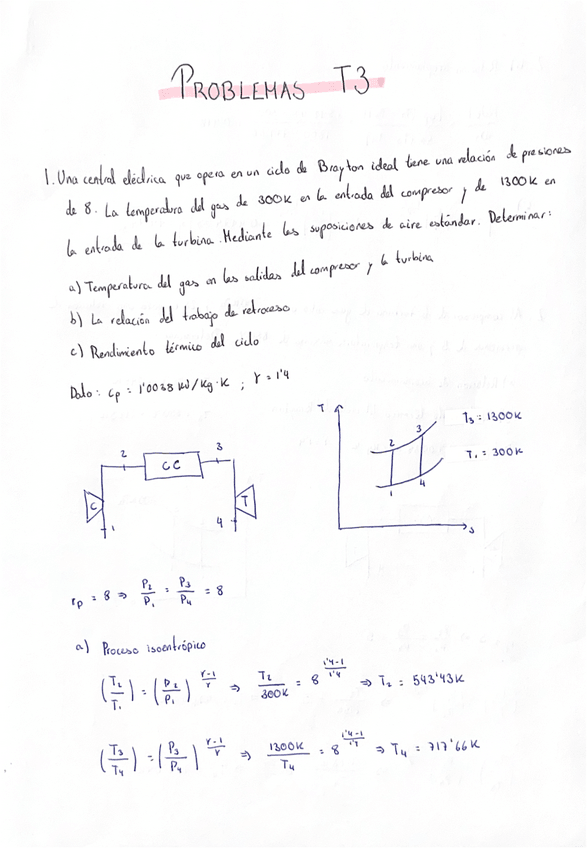 PROBLEMAS T3
1. Una central eléctrica que opera en un ciclo de Brayton ideal tiene una relación de presiones
de 8. La temperatura del gas de 300K en la entrada del compresor y de 1300K en
la entrada de la turbina. Mediante las suposiciones de aire estándar. Determinar:
a) Temperatura del gas en las salidas del compresor y la turbina
b) La relación del trabajo de retroceso
c) Rendimiento térmico del ciclo
Dato: cp = 1'0038 KJ/Kg·K ; γ = 1'4
2 CC 3
C 1 T 4
T
T₃ = 1300K
T₁ = 300K
2 3
1 4
s
rp = 8 ⇒ P₂/P₁ = P₃/P₄ = 8
a) Proceso isoentrópico
(T₂/T₁) = (P₂/P₁)^(γ-1/γ) ⇒ T₂/300K = 8^(1'4-1/1'4) ⇒ T₂ = 543'43K
(T₃/T₄) = (P₃/P₄)^(γ-1/γ) ⇒ 1300K/T₄ = 8^(1'4-1/1'4) ⇒ T₄ = 717'66K